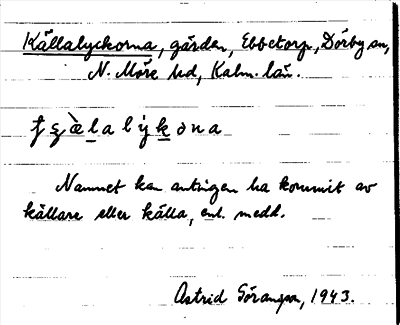 Källalyckorna, gärden, Ebbetorp, Dörby sn,
N. Möre hd, Kalm. län.
Namnet kan antingen ha kommit av
källare eller källa, enl. medd.
Astrid Göransson, 1943.